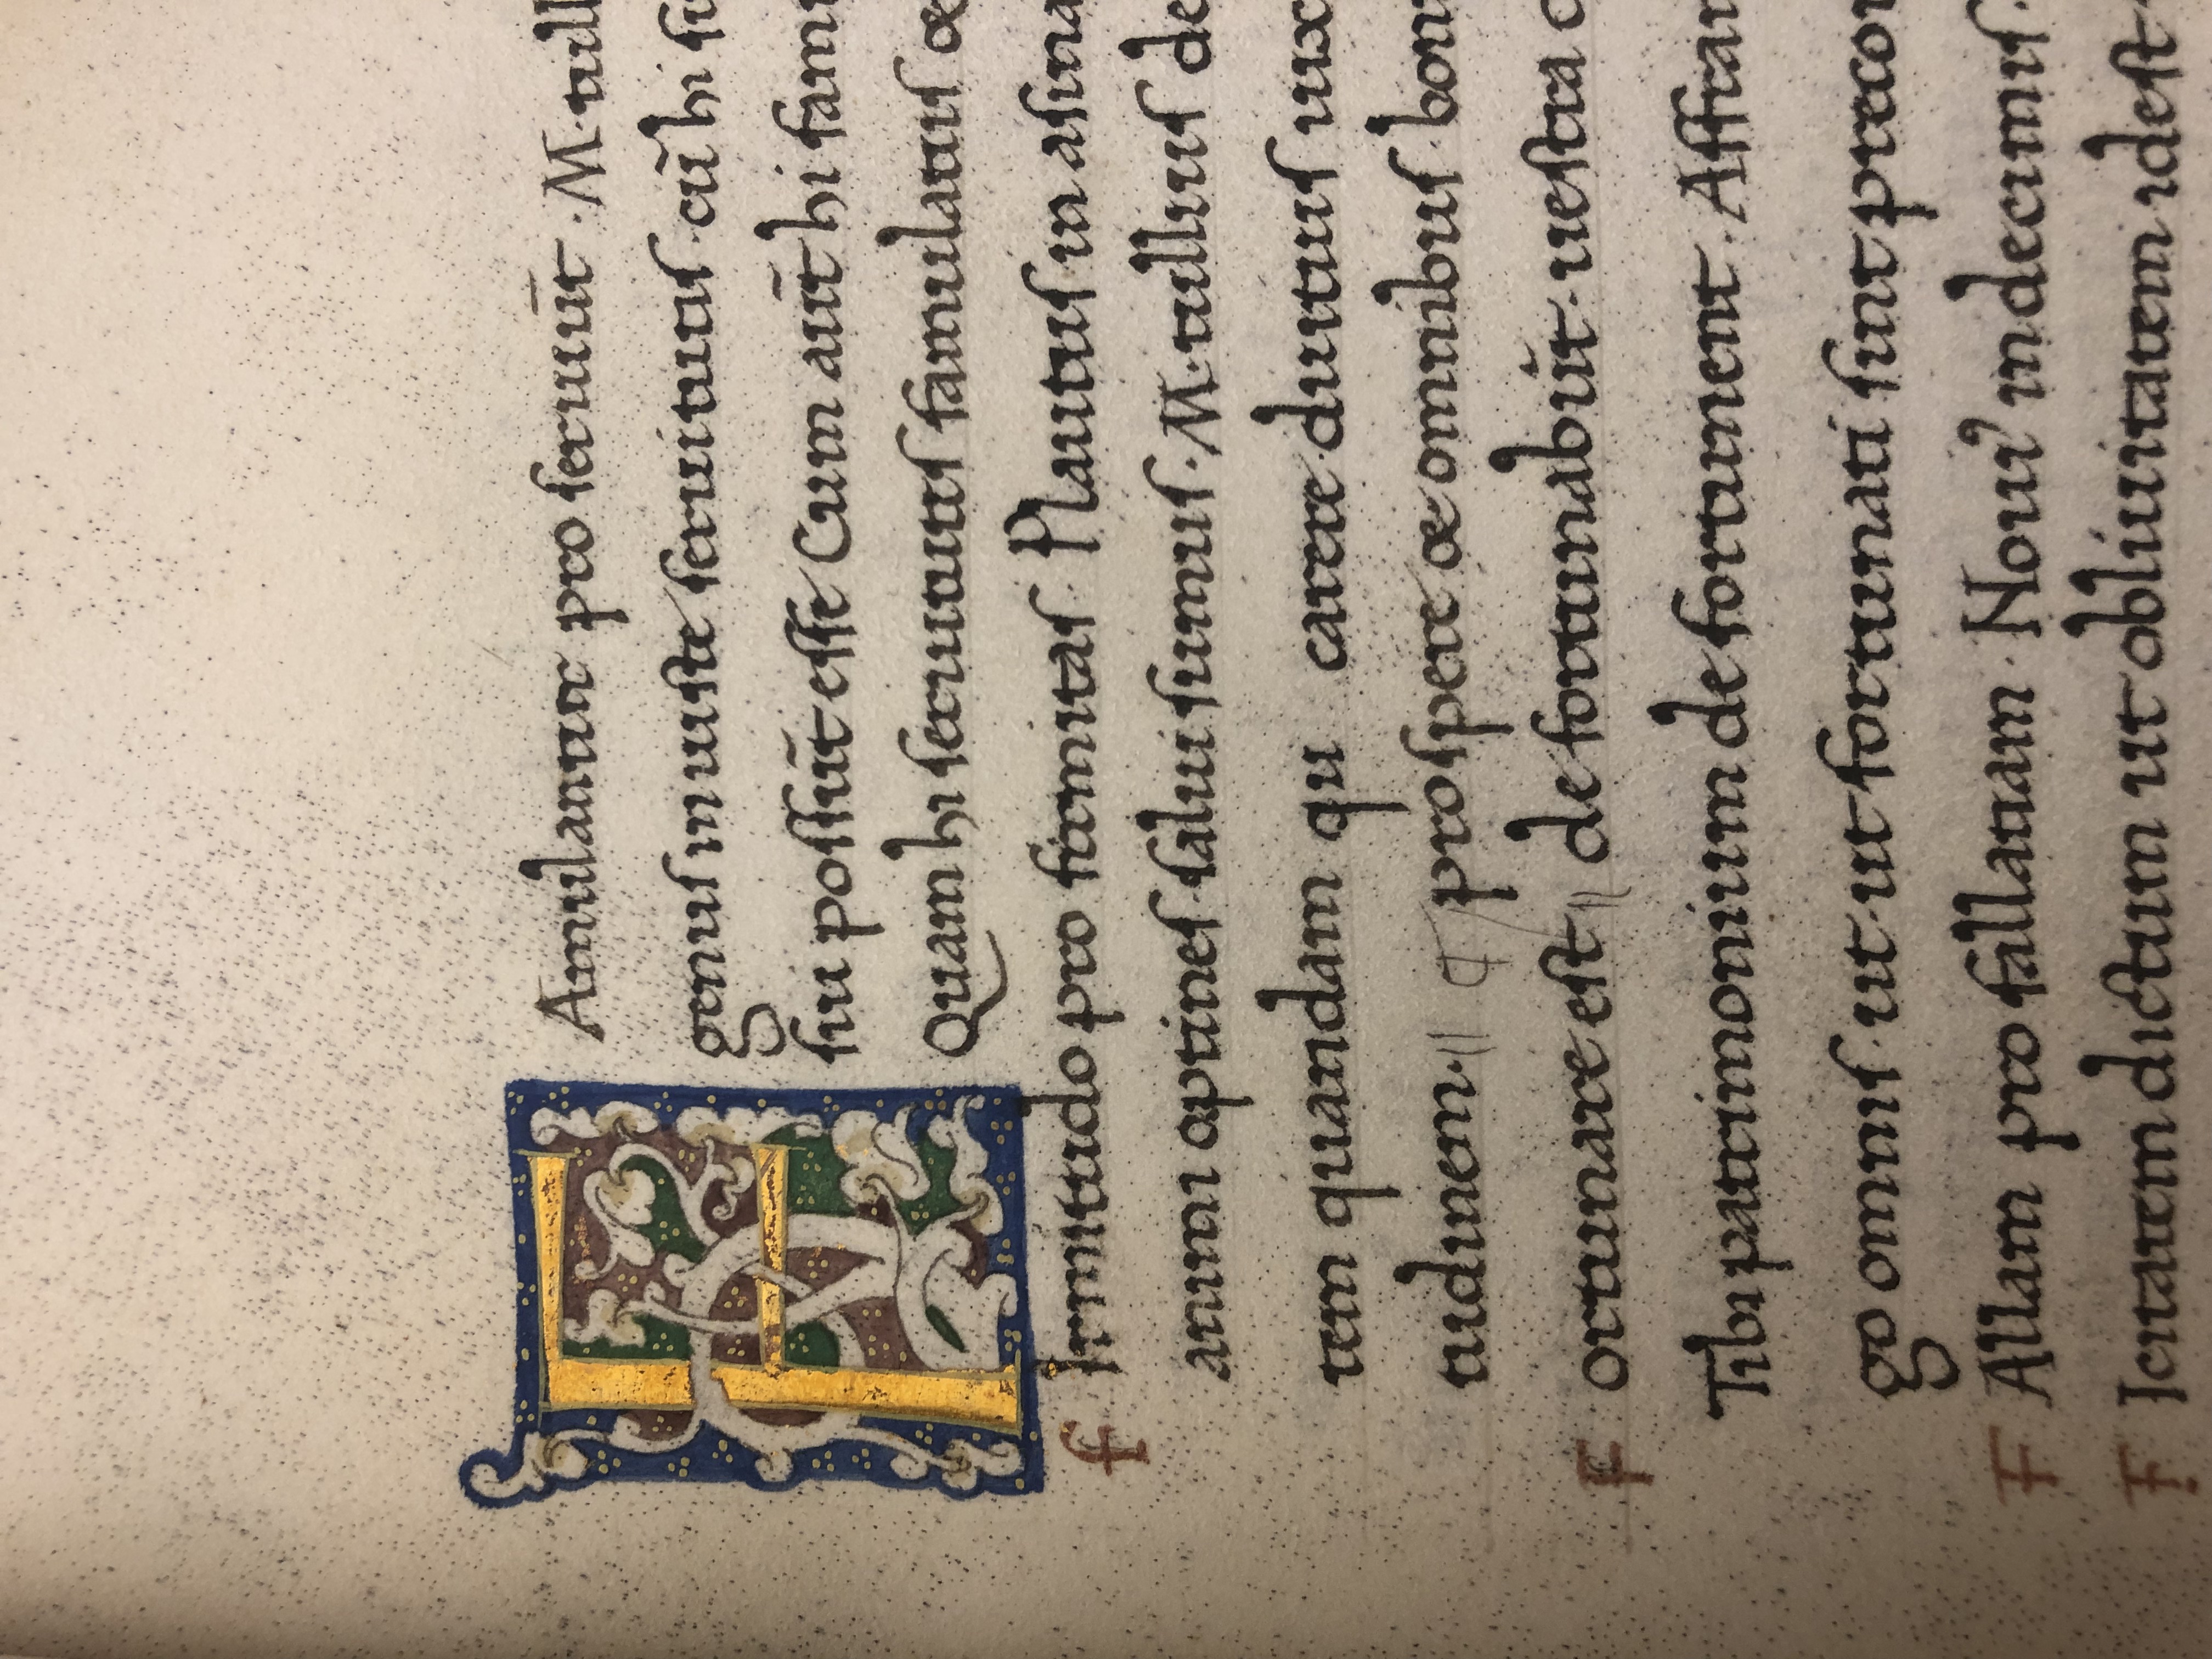 F Amulantur pro seruiūt · M· tull
genus iniuste seruitutis · cū hi su
sui possūt esse Cum aūt hi famu
Quam hi famulatus
f Irmitudo pro firmitas · Plautus in asina
animi optines salui sumus · M· tullius de
tem quandam qu carere diutius
tudinem · prospere & omnibus bon
F ortunare est de fortunabūt · uestra c
Tibi patrimonium de fortunent · Affran
go omnis · ut · ut fortunati sint precor
F Allam pro fallatiam · Noui' in decimis ·
F Icitatem dictum ut obliuitatem idest ·